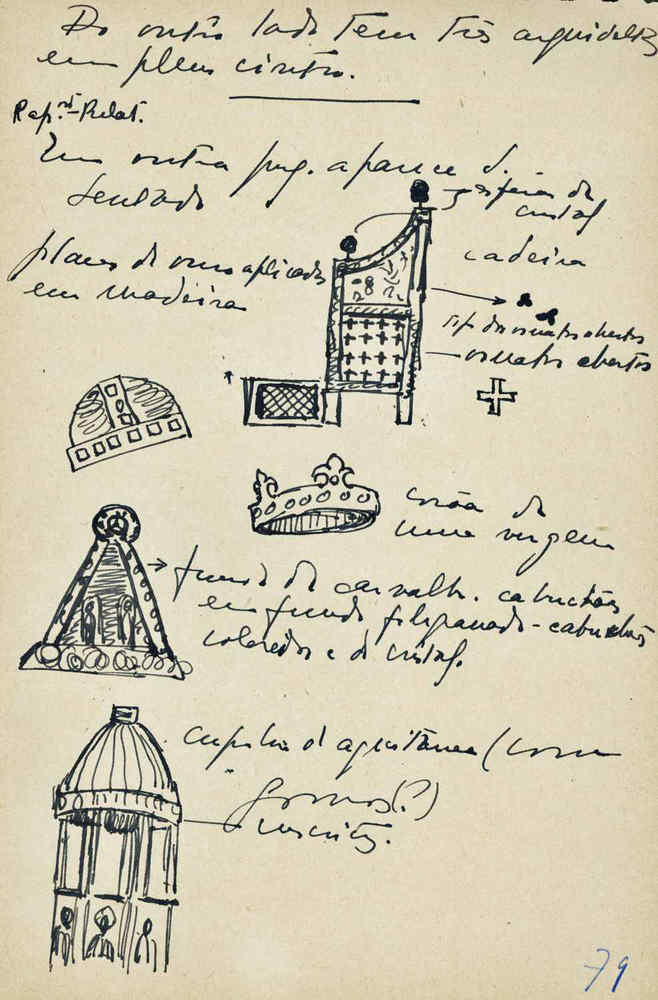 Do outro lado tem três
em pleno cintro.
Rep.nt-Relat.
Em outra pag. aparece S.
sentado
esfera de
cristal
cadeira
placas de ouro aplicadas
em madeira
ornatos abertos
ornatos abertos
corôa de
uma virgem
fundo de carvalho. cabuchões
em fundo filigranado - cabuchões
coloridos e de cristal.
cupula d'aquitanea (com
gomos(?)
inscritos.
79